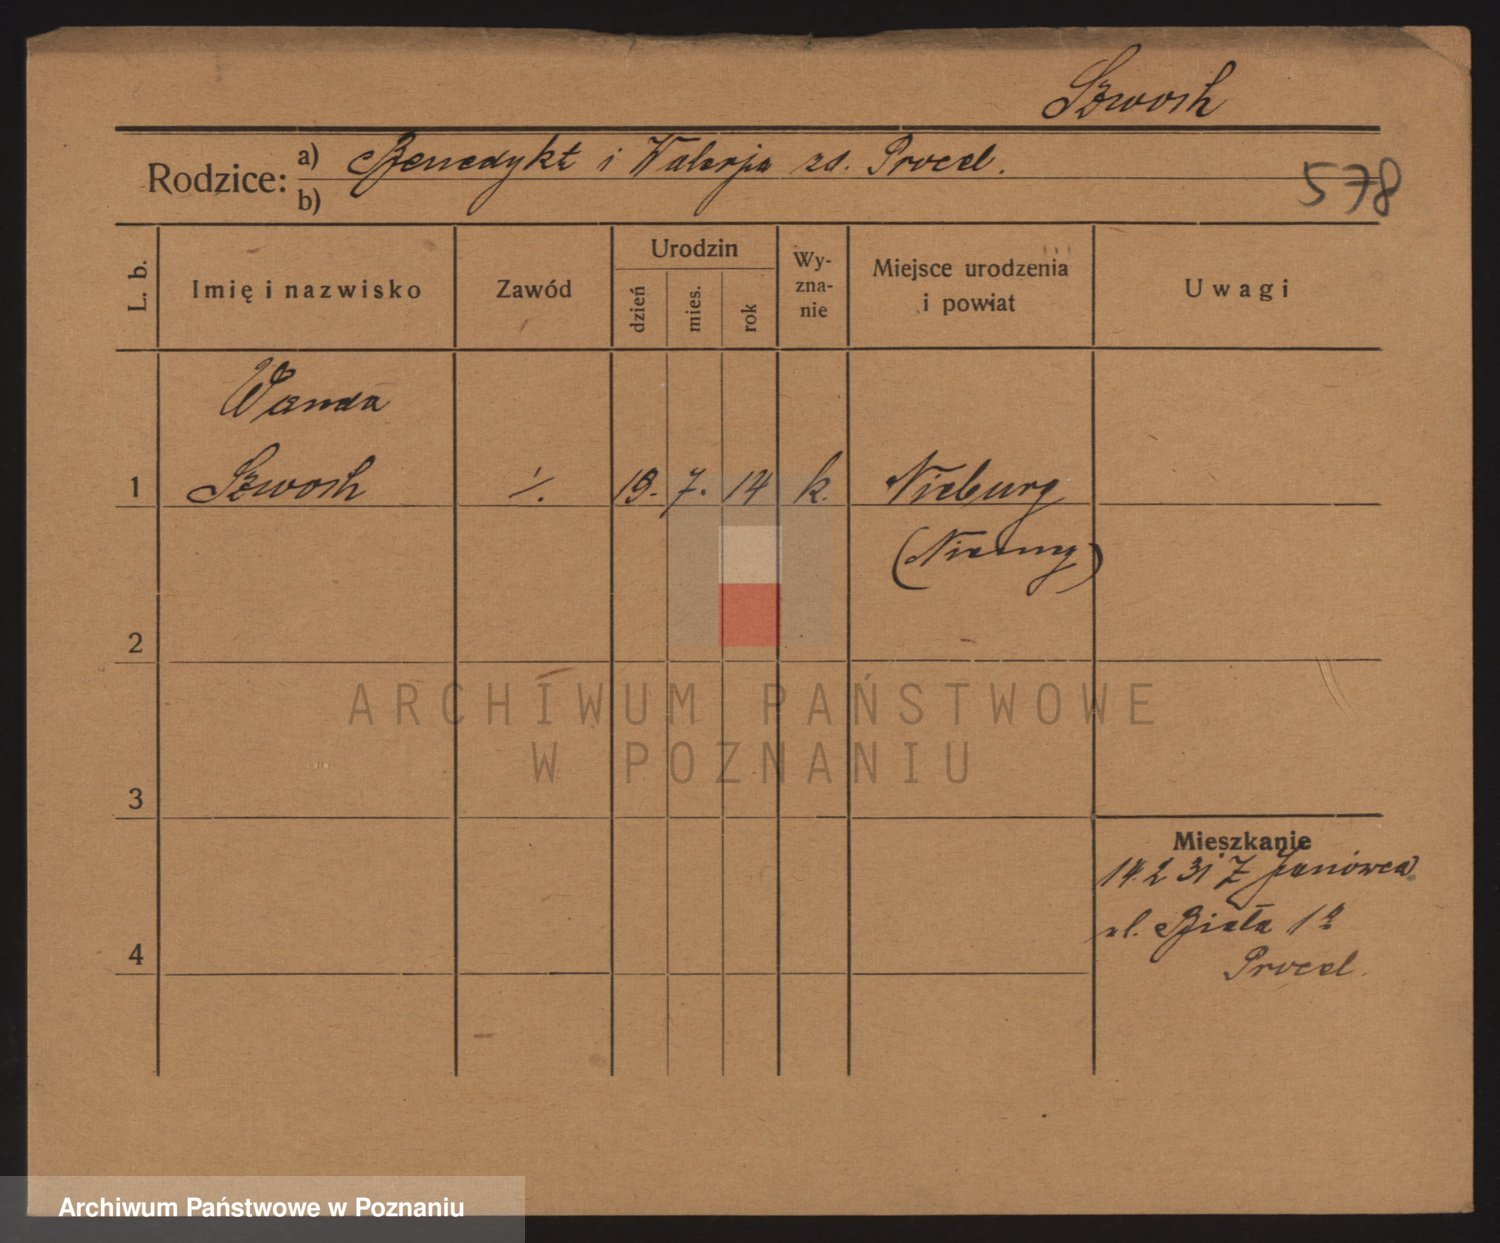 Szwosh
Rodzice: a) Benedykt i Walerja zd. Procel.
b)
578
L. b.
Imię i nazwisko
Zawód
Urodzin
dzień
mies.
rok
Wy-
zna-
nie
Miejsce urodzenia
i powiat
Uwagi
Wanda
1 Szwosh ·/. 19. 7. 14 k. Nieburg
(Niemcy)
2
ARCHIWUM PAŃSTWOWE
W POZNANIU
3
Mieszkanie
14.2 31 Z Janówca
ul. Biała 12
4
Procel.
Archiwum Państwowe w Poznaniu